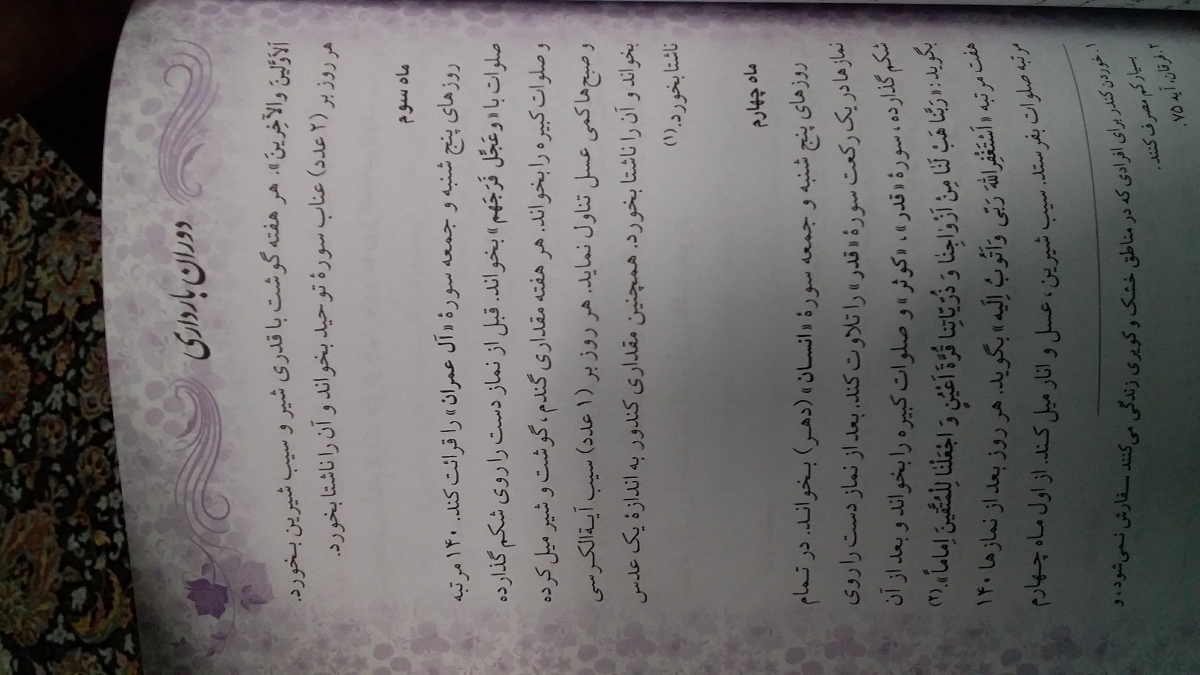 دوران بارداری
اَلاَوَّلینَ وَالآخِرینَ». هر هفته گوشت با قدری شیر و سیب شیرین بخورد.
هر روز بر (۲ عدد) عناب سورهٔ توحید بخواند و آن را ناشتا بخورد.
ماه سوم
روزهای پنج شنبه و جمعه سورهٔ «آل عمران» را قرائت کند. ۱۴۰ مرتبه
صلوات با «وَ عَجِّل فَرَجَهم» بخواند. قبل از نماز دست را روی شکم گذارده
و صلوات کبیره را بخواند. هر هفته مقداری گندم، گوشت و شیر میل کرده
و صبح‌ها کمی عسل تناول نماید. هر روز بر (۱ عدد) سیب آیةالکرسی
بخواند و آن را ناشتا بخورد. همچنین مقداری کندور به اندازهٔ یک عدس
ناشتا بخورد.(۱)
ماه چهارم
روزهای پنج شنبه و جمعه سورهٔ «انسان» (دهر) بخواند. در تمام
نمازها در یک رکعت سورهٔ «قدر» را تلاوت کند. بعد از نماز دست را روی
شکم گذارده، سورهٔ «قدر»، «کوثر» و صلوات کبیره را بخواند و بعد از آن
بگوید: «رَبَّنا هَبْ لَنا مِنْ اَزْواجِنا وَ ذُرِّیّاتِنا قُرَّةَ اَعْیُنٍ وَ اجْعَلْنا لِلْمُتَّقینَ اِماماً».(۲)
هفت مرتبه «اَسْتَغْفِرُاللهَ رَبّی وَ اَتُوبُ اِلَیه» بگوید. هر روز بعد از نمازها ۱۴۰
مرتبه صلوات بفرستد. سیب شیرین، عسل و انار میل کند. از اول ماه چهارم
۱. خوردن کندر برای افرادی که در مناطق خشک و کویری زندگی می‌کنند سفارش نمی‌شود، و
بسیار کم مصرف کنند.
۲. فرقان، آیه ۷۵.